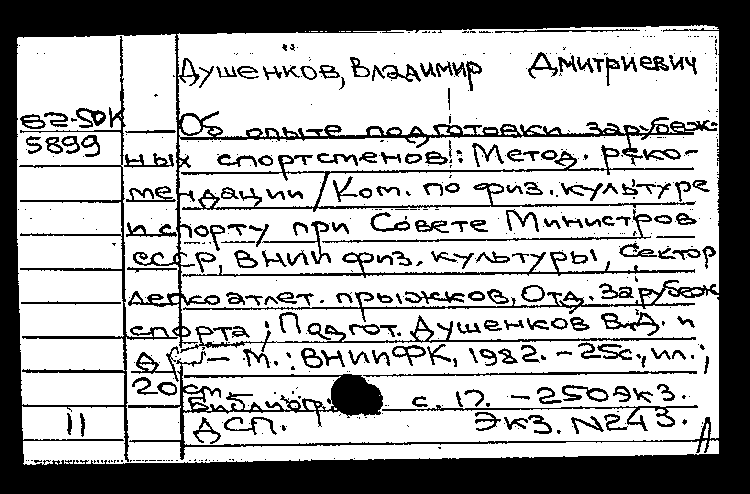 Душенков, Владимир Дмитриевич
82-50К
5899
Об опыте подготовки зарубеж-
ных спортсменов: Метод. реко-
мендации / Ком. по физ. культуре
и спорту при Совете Министров
СССР, ВНИИ физ. культуры, Сектор
легкоатлет. прыжков, Отд. зарубеж.
спорта; Подгот. Душенков В.Д. и
д – М.: ВНИИФК, 1982. – 25с., ил.;
20 см.
Библиогр: с. 17. – 250 экз.
ДСП. Экз. N243.
11